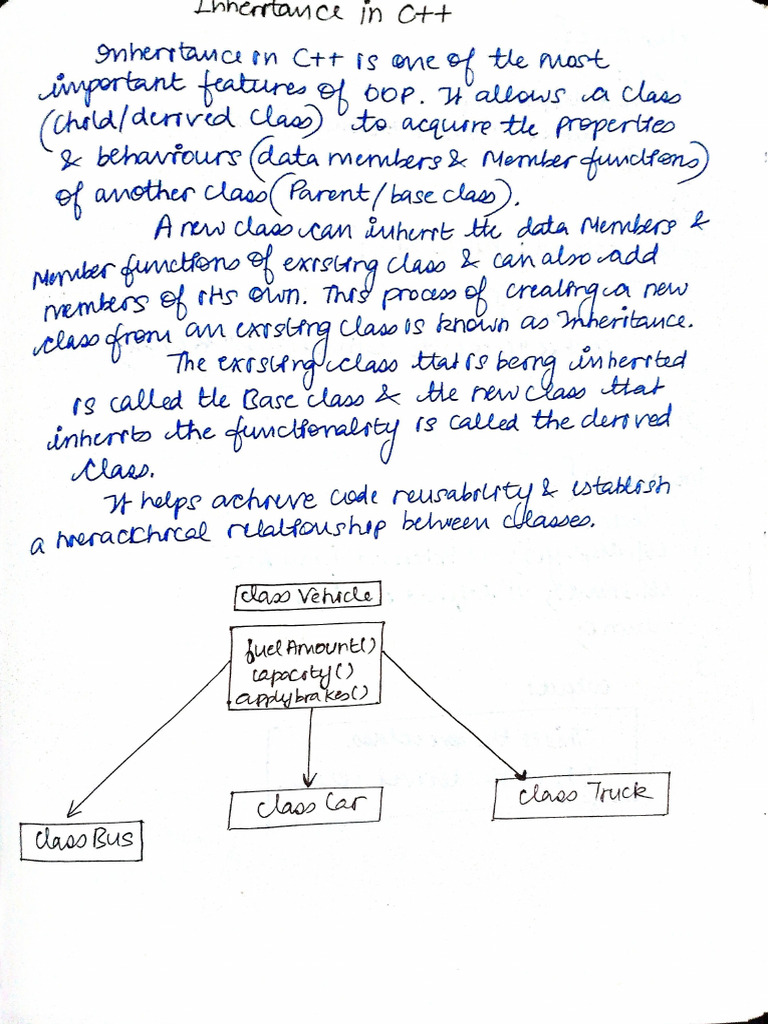 Inheritance in C++
Inheritance in C++ is one of the most
important features of OOP. It allows a class
(Child/derived Class) to acquire the properties
& behaviours (data members & Member functions)
of another class (Parent/base class).
A new class can inherit the data Members &
Member functions of existing class & can also add
members of its own. This process of creating a new
class from an existing class is known as Inheritance.
The existing class that is being inherited
is called the Base class & the new class that
inherits the functionality is called the derived
Class.
It helps achieve code reusability & establish
a hierackhical relationship between classes.
class Vehicle
fuelAmount()
capacity()
applybrakes()
class Bus
class Car
class Truck